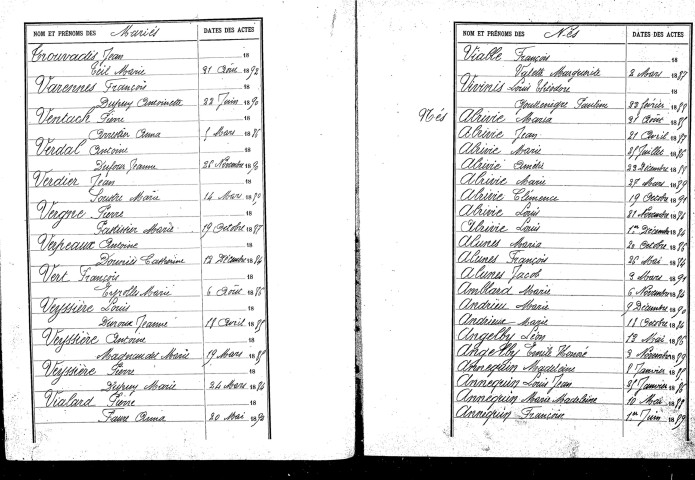 NOM ET PRÉNOMS DES Mariés DATES DES ACTES
Trouvadis Jean 18
Ceil Marie 31 Août 1892
Varennes François 18
Dupuy Antoinette 22 Juin 1890
Ventach Pierre 18
Anna 1 Mars 1886
Verdal Antoine 18
Dufour Jeanne 26 Novembre 1890
Verdier Jean 18
Soudre Marie 14 Mars 1890
Vergne Pierre 18
Marie 19 Octobre 1887
Verpeaux Antoine 18
Catherine 13 Décembre 1884
Vert François 18
Marie 6 Août 1886
Veyssière Louis 18
Jeanne 18 Avril 1885
Veyssière Antoine 18
Magnaudas Marie 19 Mars 1888
Veyssière Pierre 18
Dupuy Marie 24 Mars 1886
Vialard Pierre 18
Faure Anna 20 Mai 1890
NOM ET PRÉNOMS DES Nés DATES DES ACTES
Vialle François 18
Valette Marguerite 2 Mars 1887
Vivinis Louis Théodore 18
Pauline 23 février 1888
Nés
Abrivie Maria 31 Août 1885
Abrivie Jean 21 Avril 1887
Abrivie Marie Juillet 1886
Abrivie 23 Décembre 1888
Abrivie Marie 27 Mars 1889
Abrivie Clémence 19 Octobre 1891
Abrivie Louis 21 Novembre 1884
Abrivie Louis 1er Décembre 1884
Alunes Maria 20 Octobre 1885
Alunes François 26 Mai 1884
Alunes Jacob 3 Mars 1891
Amblard Marie 6 Novembre 1884
Andrieu Marie 9 Décembre 1890
Andrieux Marie 18 Octobre 1884
Angelby Léon 13 Mai 1886
Angelby Emile Honoré 3 Novembre 1889
Annequin Madeleine 8 Janvier 1885
Annequin Louis Jean Janvier 1886
Annequin Marie Madeleine 10 Mai 1888
Annequin François 1er Juin 1889